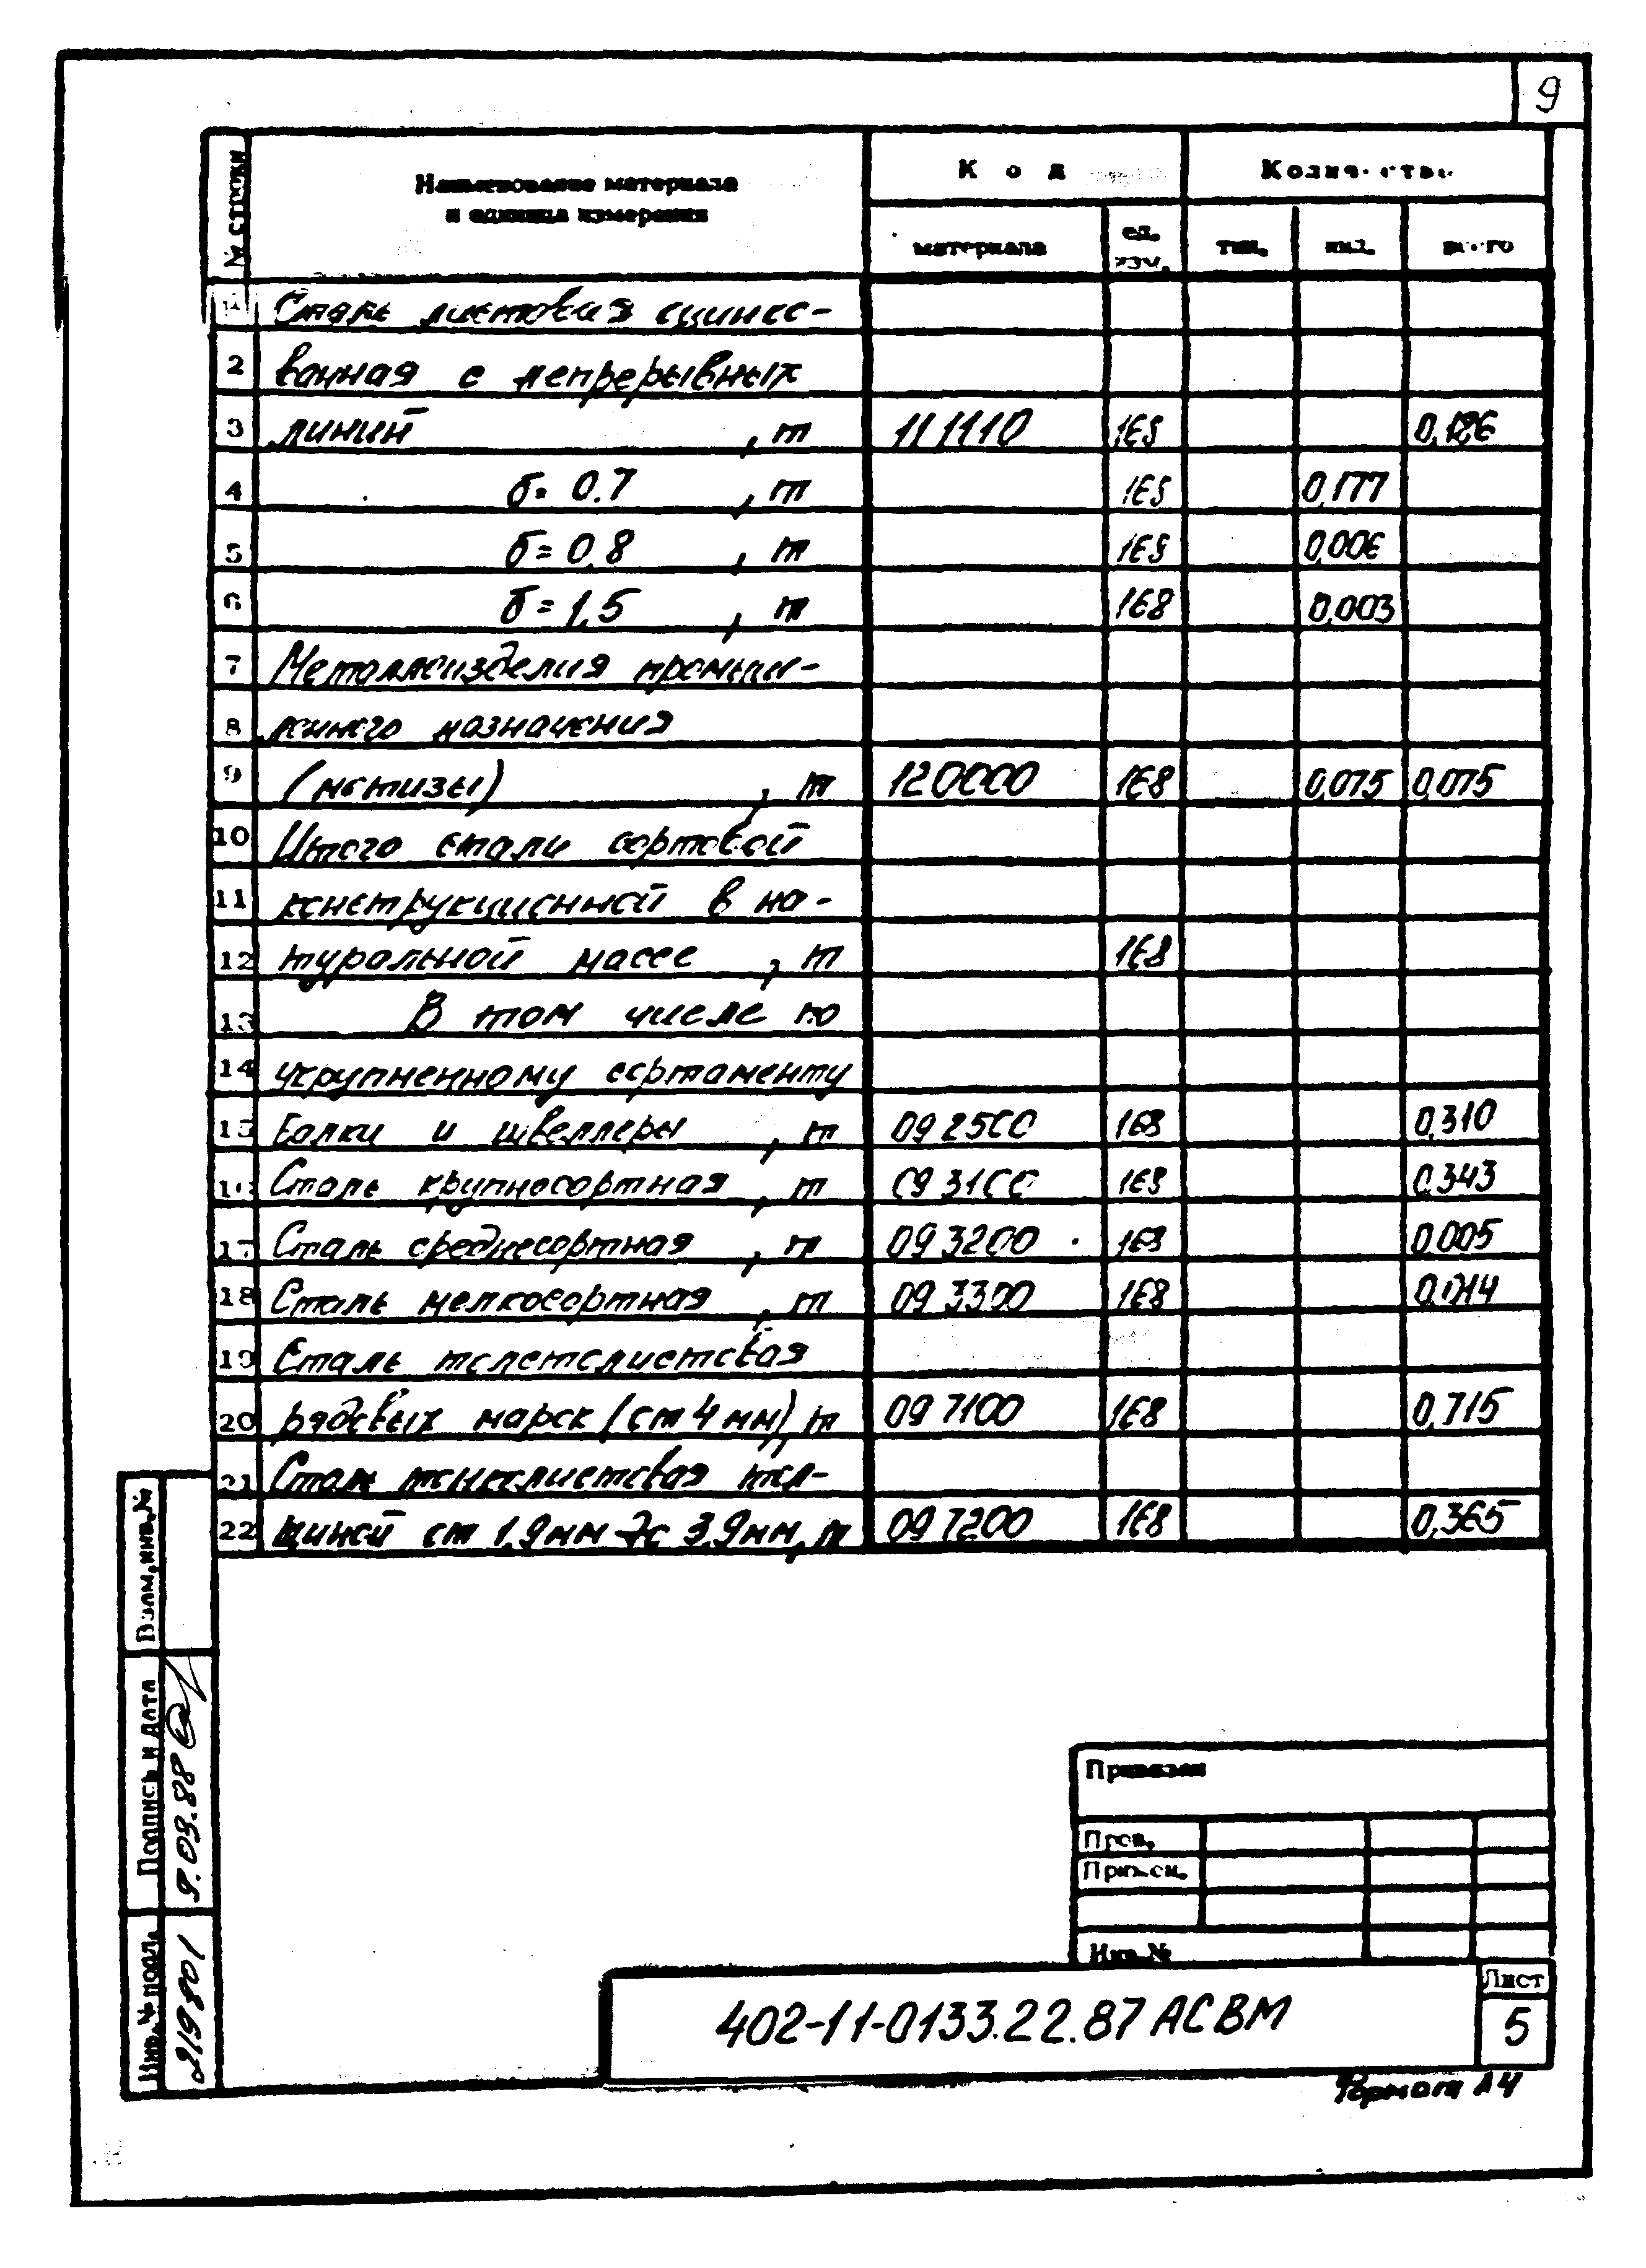 9
№ строки
Наименование материала
и единица измерения
Код
Количество
материала
ед.
изм.
тип.
инд.
всего
1 Сталь листовая оцинко-
2 ванная с непрерывных
3 линий , т 111110 168 0,186
4 δ= 0.7 , т 168 0,177
5 δ= 0,8 , т 168 0,006
6 δ= 1,5 , т 168 0,003
7 Металлоизделия промыш-
8 ленного назначения
9 (метизы) , т 120000 168 0,075 0,075
10 Итого стали сортовой
11 конструкционной в на-
12 туральной массе , т 168
13 В том числе по
14 укрупненному сортаменту
15 Балки и швеллеры , т 092500 168 0,310
16 Сталь крупносортная , т 093100 168 0,343
17 Сталь среднесортная , т 093200 168 0,005
18 Сталь мелкосортная , т 093300 168 0,014
19 Сталь толстолистовая
20 рядовых марок (от 4 мм), т 097100 168 0,715
21 Сталь тонколистовая тол-
22 щиной от 1,9 мм до 3,9 мм, т 097200 168 0,365
Взам, инв, №
Подпись и дата
9.03.88
Инв. № подл.
219801
Привязан
Пров.
Инв. №
402-11-0133.22.87 АСВМ
Лист
5
Формат А4